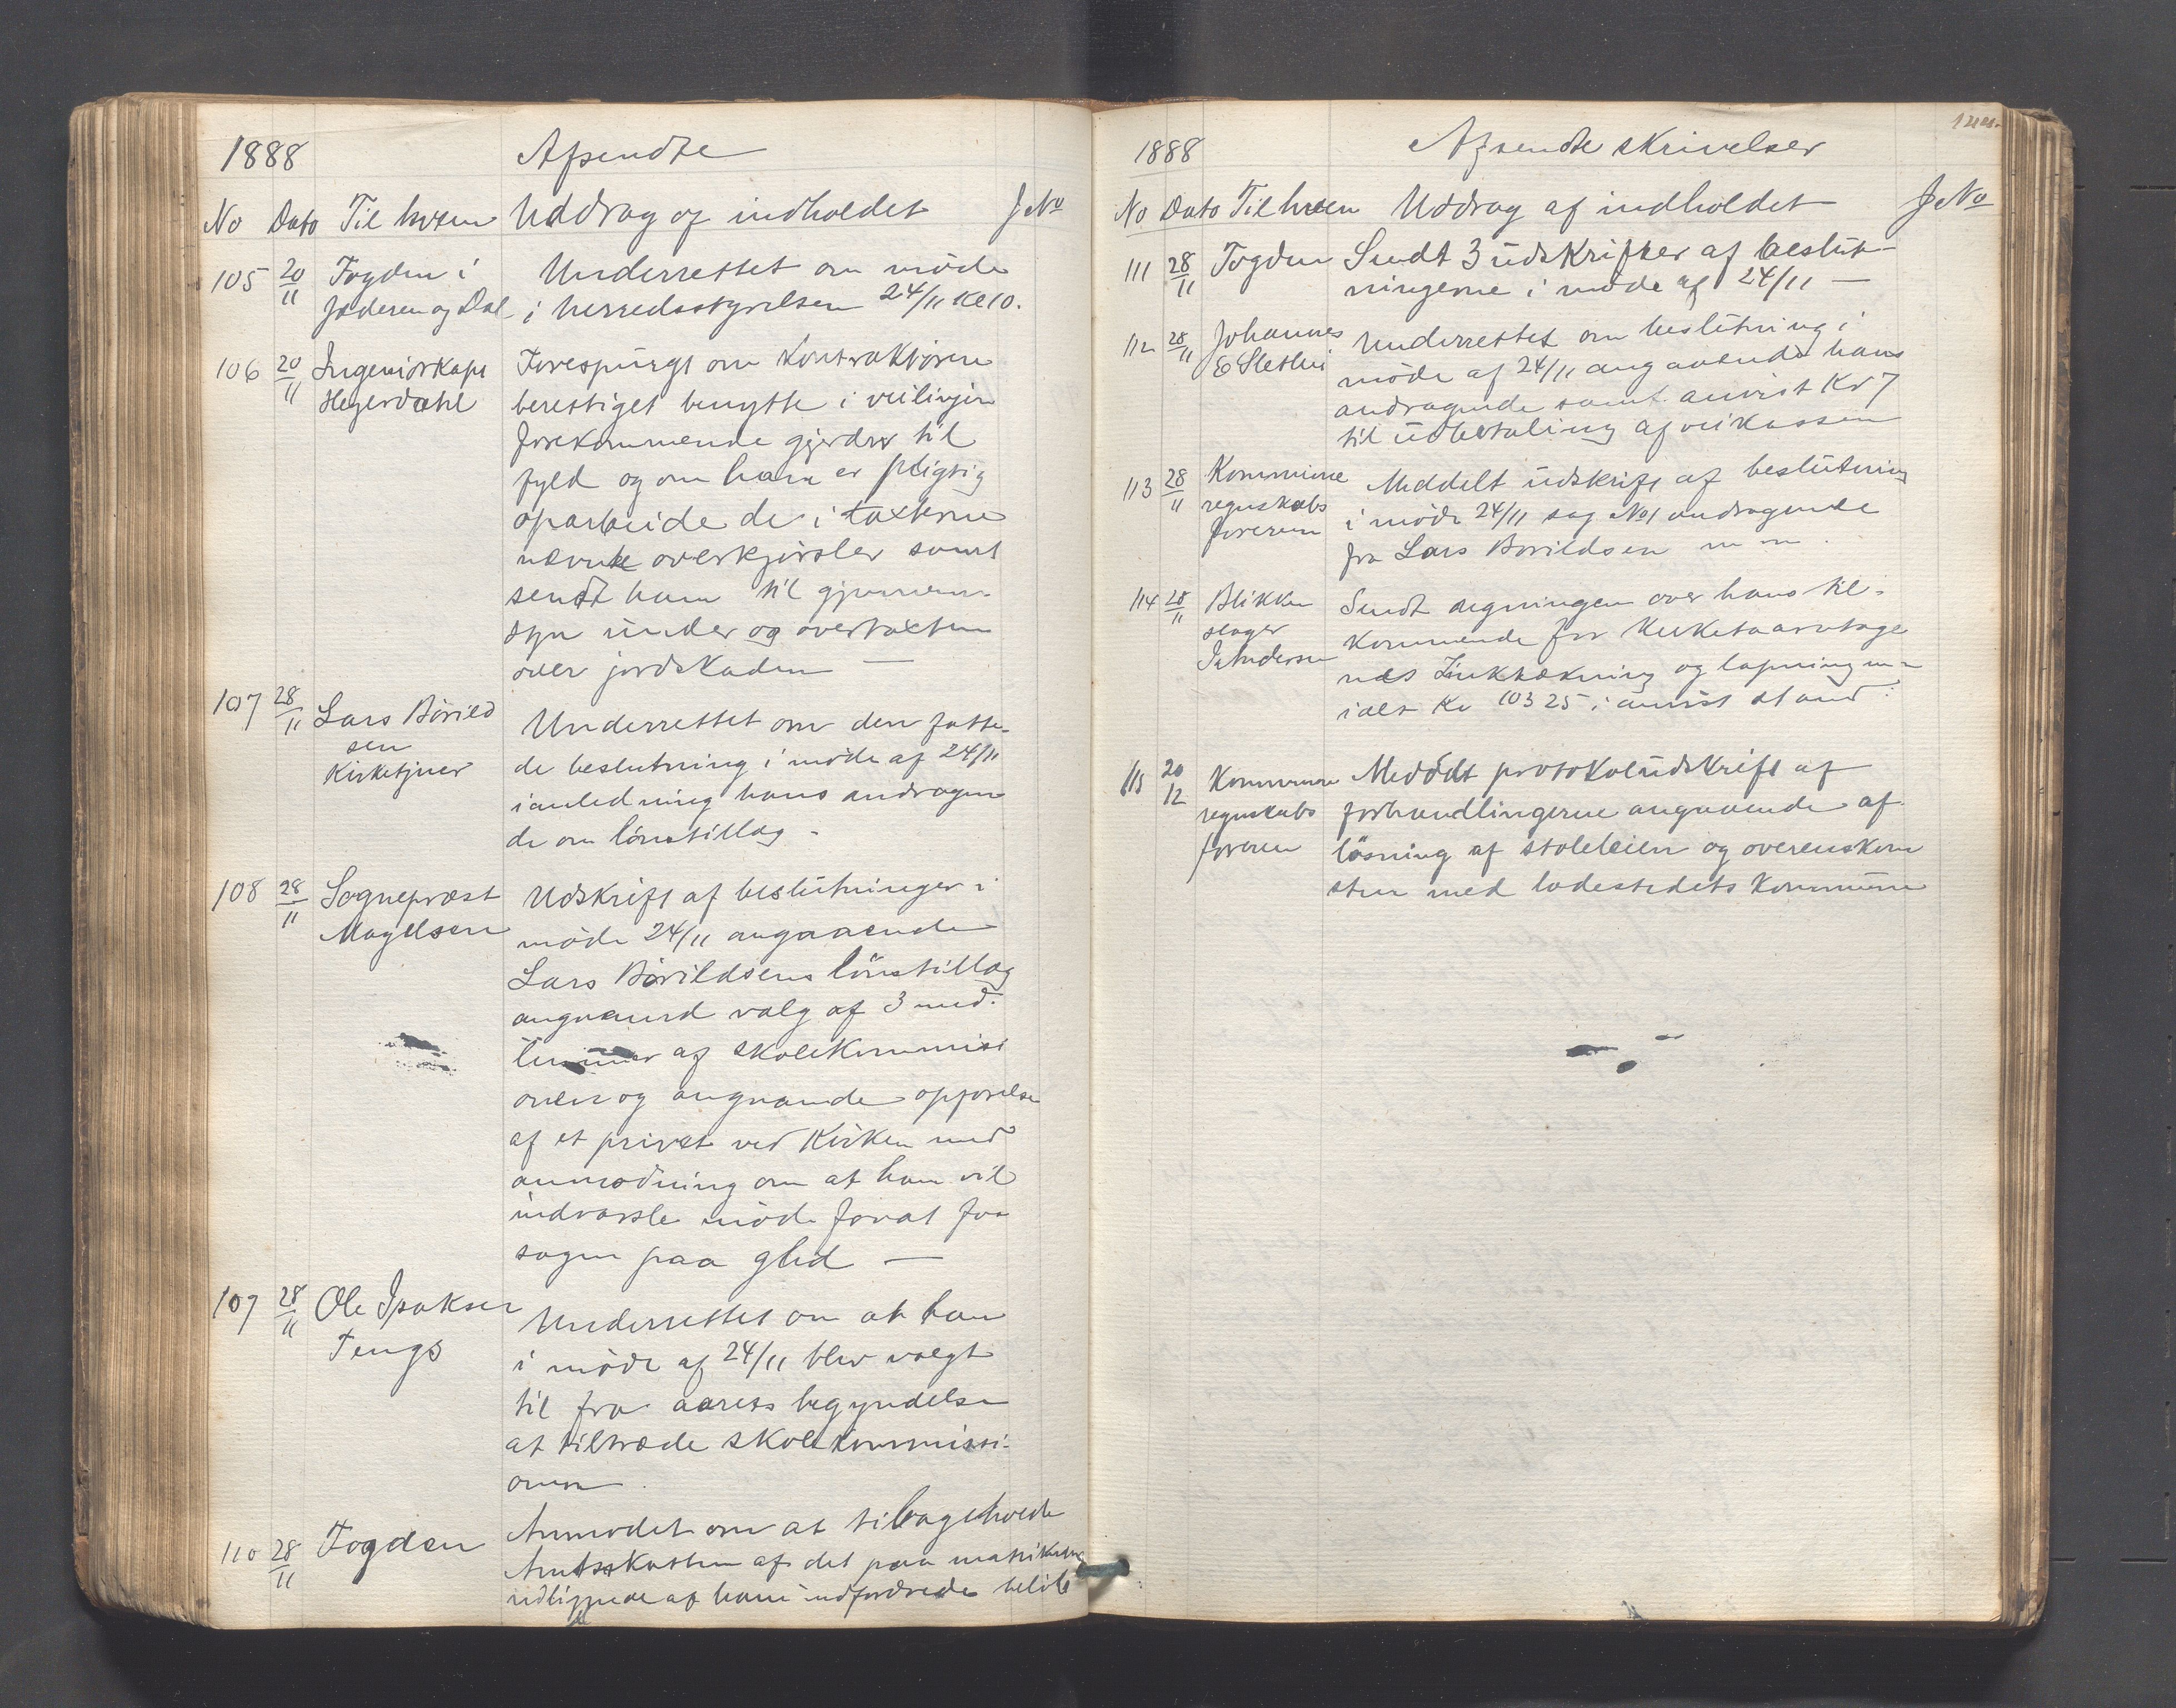 1888 Afsendte
No Dato Til hvem Uddrag af indholdet J No
105 20/11 Fogden i Underrettet om møde
Jæderen og Dal. i herredsstyrelsen 24/11 Kl 10.
106 20/11 Ingeniørkapt Forespurgt om Kontraktøren
Hegerdahl berettiget benytte i veilinjen
forekommende gjerder til
fyld og om han er pligtig
oparbeide de i taxterne
nævnte overkjørsler samt
sendt ham til gjennem-
syn under og overtaxten
over jordskaden —
107 28/11 Lars Børild Underrettet om den fatte-
sen de beslutning i møde af 24/11
Kirketjner ianledning hans andragen
de om lønstillæg -
108 28/11 Sognepræst Udskrift af beslutninger i
Magelsen møde 24/11 angaaende
Lars Børildsens lønstillæg
angaaend valg af 3 med-
lemmer af skolekommisi
onen og angaaende opførelse
af et privet ved Kirken med
anmodning om at han vil
indvarsle møde forat faa
sagen paa glid —
109 28/11 Ole Isaksen Underrettet om at han
Tengs i møde af 24/11 blev valgt
til fra aarets begyndelse
at tiltræde skolekommissi-
onen
110 28/11 Fogden Anmodet om at tilbageholde
Amtsskatten af det paa matrikulen
udlignede af ham indfordrede beløb
1888 Afsendte skrivelser
No Dato Til hvem Uddrag af indholdet J No
111 28/11 Fogden Sendt 3 udskrifter af beslut-
ningerne i møde af 24/11 —
112 28/11 Johannes Underrettet om beslutning i
E Sletthei møde af 24/11 angaaende hans
andragende samt anvist Kr 7
til udbetaling af veikassen
113 28/11 Kommune Meddelt udskrift af beslutning
regnskabs i møde 24/11 sag No 1 andragende
føreren fra Lars Børildsen m m.
114 28/11 Blikken Sendt regningen over hans til-
slager kommende for Kirketaarntage
I Andersen nes Zinktækning og lapning m-
ialt Kr 103 25 i anvist stand
115 20/12 Kommune Meddelt protokoludskrift af
regnskabs forhandlingerne angaaende af
føreren løsning af stoleleien og overenskom
sten med ladestedets Kommune